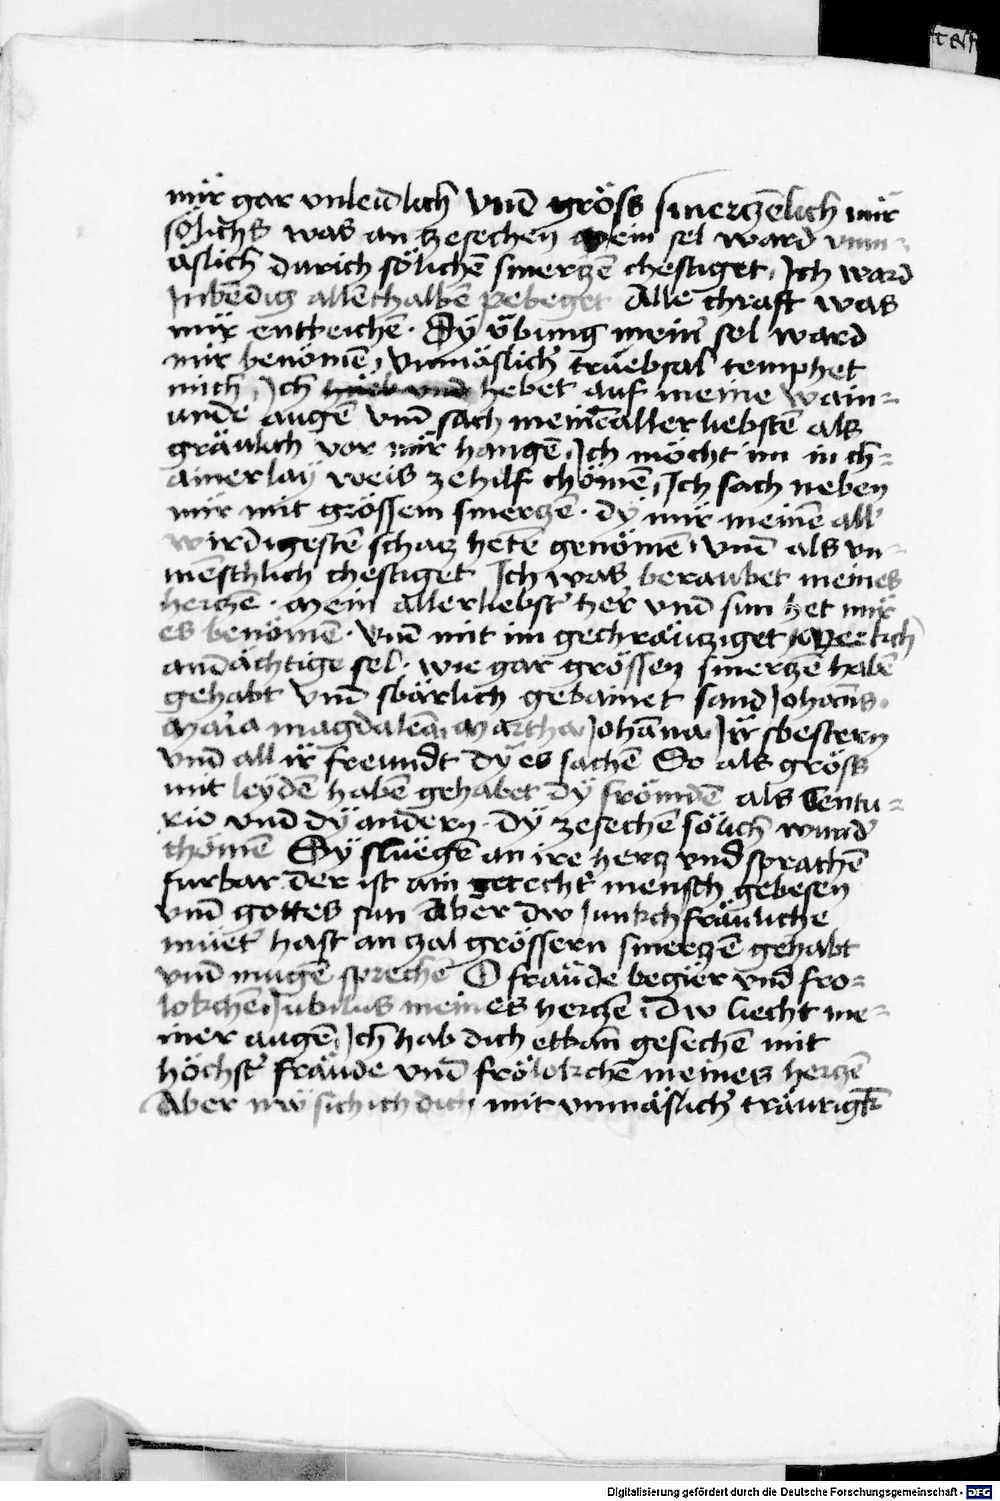 mir gar vnleidlich vnd gröss smerczenlich mir
sölichs was an zesechen mein sel ward vnm-
äslich durich sölichē smerczē chestiget, Ich ward
Inbēdig allēthalbē pebeget Alle chraft was
mir entbeichē. Dÿ übung meinˀ sel ward
mir benömē, vnmäslichˀ trüebsal temphet
mich, Ich hebet auf meine wain-
unde augē vnd sach meinē aller liebstē als
gräulich vor mir hangē, Ich möcht im in ch-
ainerlay weis zehilf chömē, Ich sach neben
mir mit grössem smerczē. dÿ mir meinē allˀ
wirdigestē schacz hetē genömē, vnd als vn-
menschlich chestiget Ich was beraubet meines
herczē. Mein allerliebstˀ herˀ vnd sun het mir
es benömē. vnd mit im gechräucziget Merkch
andächtige sel. wie gar grössen smerczē habē
gehabt vnd sbärlich gebainet sand Johāns.
Maria magdalēa, Martha, Johāna, Ir sbestern
vnd all ir freundt dÿ es sachē So als gröss
mit leÿdē habē gehabet dÿ frömdē als Centu-
rio vnd dÿ andern. dÿ zesechē sölich wundˀ
chömē Dÿ sluegē an ire hercz vnd sprachē
furbar der ist ain gerechtˀ mensch gebesen
vnd gottes sun Aber dw Junkchfräuliche
müetˀ hast an zal grössern smerczē gehabt
vnd mugē sprechē O fraüde begier vnd fro-
lokchē, Jubilus meines herczē, Dw liecht me-
iner augē, Ich hab dich etban gesechē mit
höchstˀ fräude vnd frölokchē meines herczē
Aber nw sich ich dich mit vnmäslichˀ träurigk̄
Digitalisierung gefördert durch die Deutsche Forschungsgemeinschaft - DFG